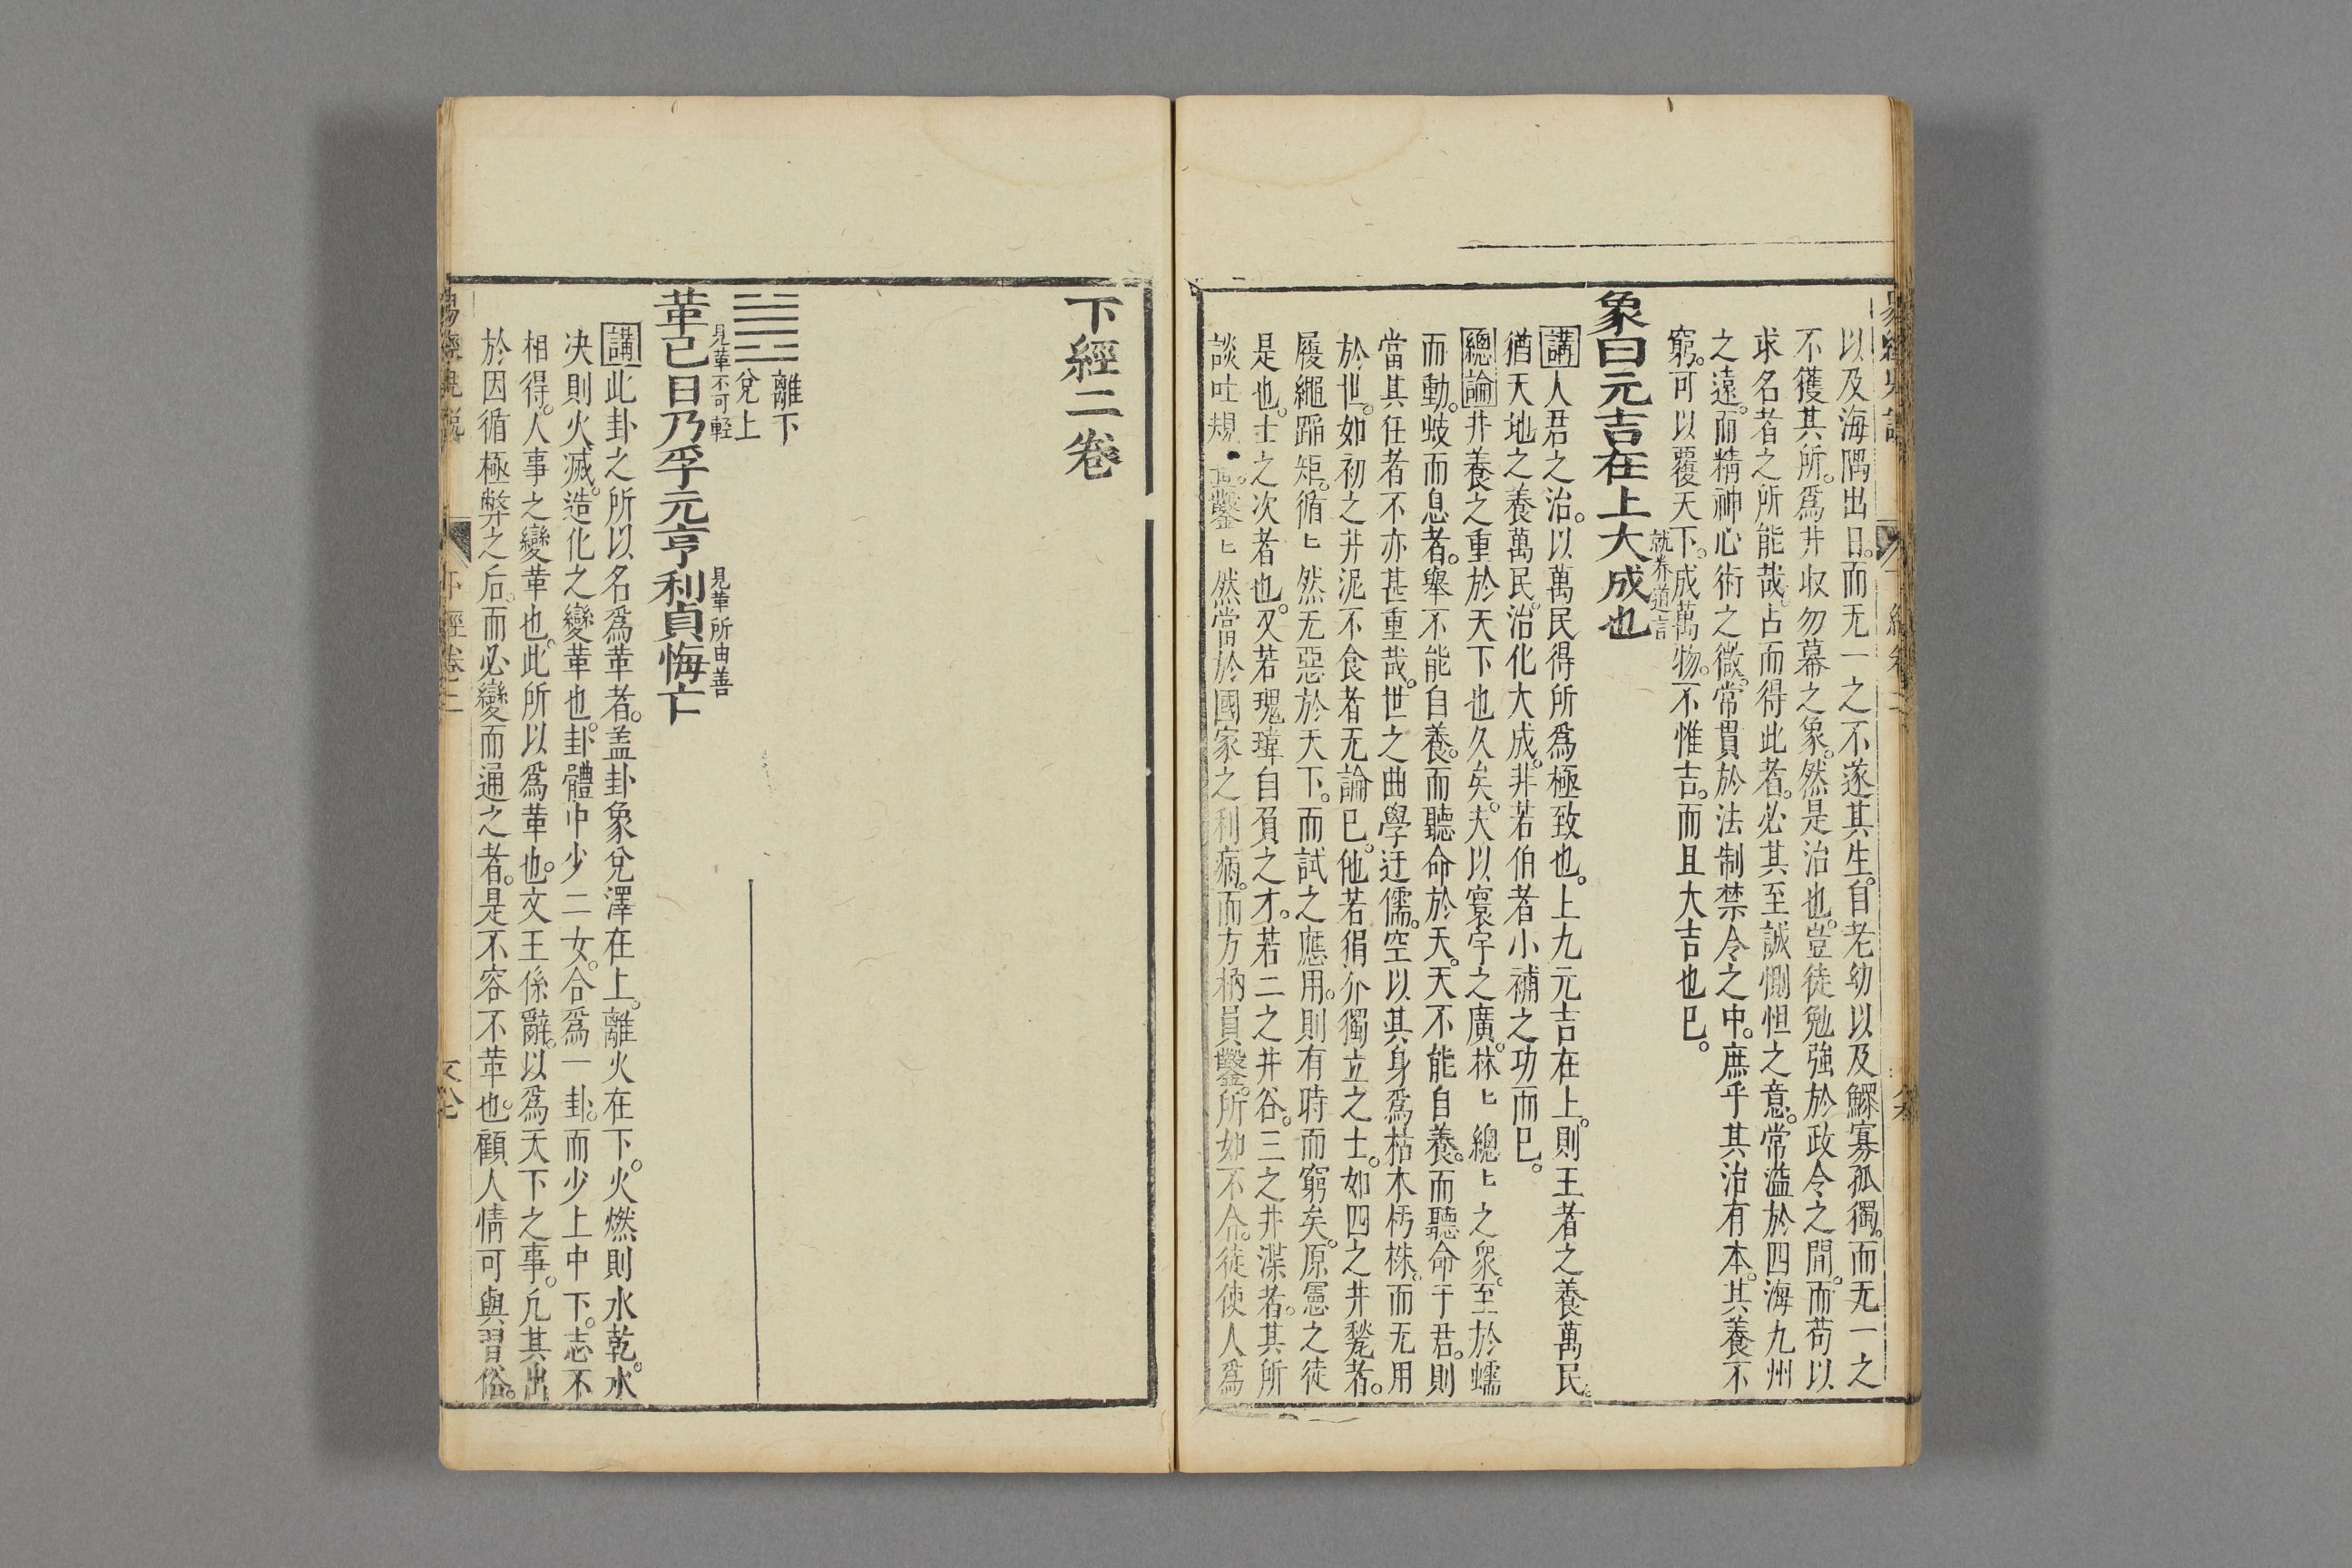 以及海隅出日。而无一之不遂其生。自老幼以及鰥寡孤獨。而无一之
不獲其所。爲井収勿幕之象。然是治也。豈徒勉強於政令之間。而苟以
求名者之所能哉。占而得此者。必其至誠惻怛之意。常溢於四海九州
之遠。而精神心術之微。常貫於法制禁令之中。庶乎其治有本。其養不
窮。可以覆天下。成萬物。不惟吉。而且大吉也已。
就養道言
象曰元吉在上大成也
講人君之治。以萬民得所爲極致也。上九元吉在上。則王者之養萬民
猶天地之養萬民。治化大成。非若伯者小補之功而已。
總論井養之重於天下也久矣。夫以寰宇之廣。林〻總〻之衆。至於蠕
而動。蚑而息者。舉不能自養。而聽命於天。天不能自養。而聽命于君。則
當其任者不亦甚重哉。世之曲學迂儒。空以其身爲枯木朽株。而无用
於世。如初之井泥不食者无論已。他若狷介獨立之士。如四之井甃者。
履繩蹈矩。循〻然无惡於天下。而試之應用。則有時而窮矣。原憲之徒
是也。士之次者也。又若瑰瑋自負之才。若二之井谷。三之井渫者。其所
談吐規 鑿〻然當於國家之利病。而方枘員鑿。所如不合。徒使人爲
下經二卷
離下
兌上
見革不可輕
見革所由善
革已日乃孚元亨利貞悔亡
講此卦之所以名爲革者。盖卦象兌澤在上。離火在下。火燃則水乾。水
决則火滅。造化之變革也。卦體中少二女。合爲一卦。而少上中下。志不
相得。人事之變革也。此所以爲革也。文王係辭。以爲天下之事。凢其出
於因循極弊之后。而必變而通之者。是不容不革也。顧人情可與習俗。
下經卷二